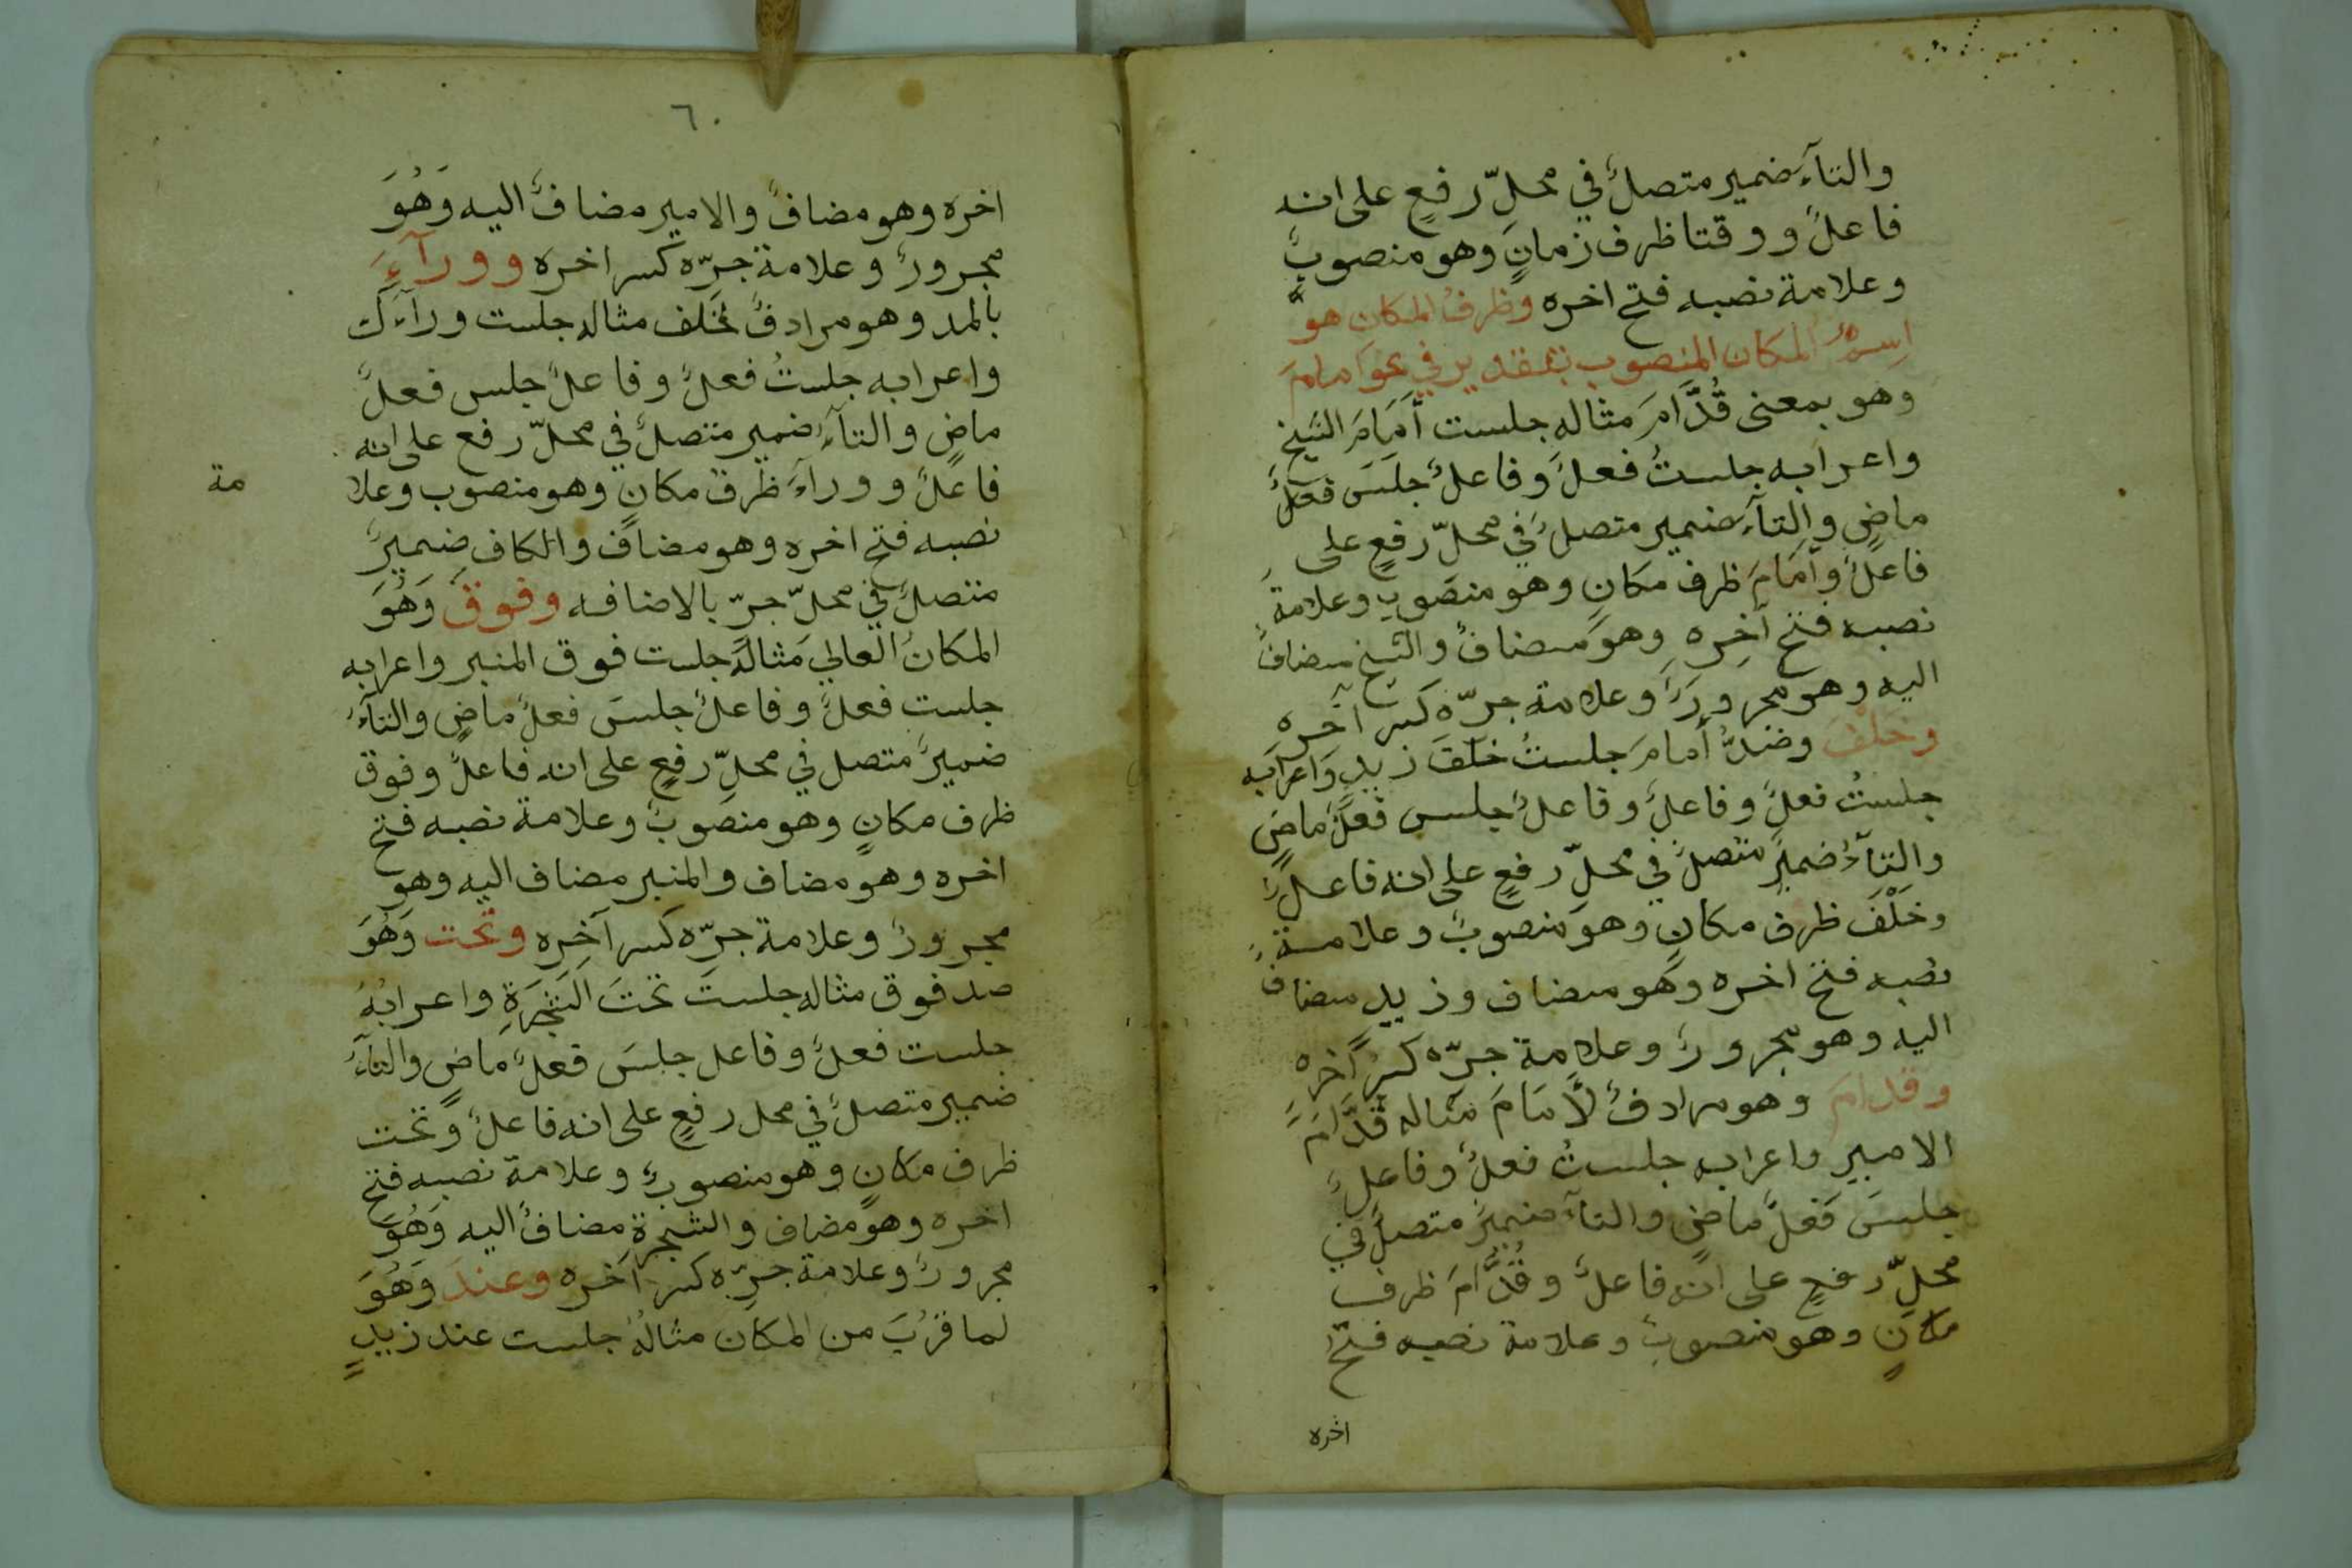 والتآءَ ضمير متصلٌ في محلّ رفعٍ على انه
فاعلٌ ووقتا ظرف زمانٍ وهو منصوبٌ
وعلامة نصبه فتح اخره وظرفُ المكان هو
اِسمُ المكان المنصوب بتقدير في نحو امامَ
وهو بمعنى قُدَّامَ مثاله جلست أَمَامَ الشيخ
واعرابه جلستُ فعلٌ وفاعلٌ جلَسَ فعلٌ
ماضٍ والتآءَ ضمير متصلٌ في محلّ رفعٍ على
فاعلٌ وأَمَامَ ظرف مكانٍ وهو منصوب وعلامة
نصبه فتح آخِره وهو مضافٌ والشيخ مضافٌ
اليه وهو مجرورٌ وعلامة جرّه كسر آخره
وخلفَ وضدُّ أمامَ جلستُ خلفَ زيدٍ واعرابه
جلستُ فعلٌ وفاعلٌ وفاعلٌ جلس فعلٌ ماضٍ
والتآءُ ضميرٌ متصلٌ في محلّ رفعٍ على انه فاعلٌ
وخَلْفَ ظرف مكانٍ وهو منصوبٌ وعلامة
نصبه فتح اخره وهو مضاف وزيدٍ مضاف
اليه وهو مجرورٌ وعلامة جرّه كسرُ آخره
وقدامَ وهو مرادفٌ لأَمَامَ مثاله قُدَّامَ
الامير واعرابه جلستُ فعلٌ وفاعلٌ
جلسَ فعلٌ ماضٍ والتآءَ ضميرٌ متصلٌ في
محلّ رفعٍ على انه فاعلٌ وقُدَّامَ ظرف
مكانٍ وهو منصوبٌ وعلامة نصبه فتحُ
اخره
٦٠
اخره وهو مضافٌ والامير مضافٌ اليه وَهُوَ
مجرورٌ وعلامة جرّه كسر اخره وورآءَ
بالمد وهو مرادفٌ لخلف مثاله جلست ورآءَك
واعرابه جلستُ فعلٌ وفاعلٌ جلس فعلٌ
ماضٍ والتآءُ ضمير متصلٌ في محلّ رفع على انه
فاعلٌ وورآءَ ظرف مكانٍ وهو منصوب وعلا
مة
نصبه فتح اخره وهو مضافٌ والكاف ضميرٌ
متصلٌ في محلّ جرّ بالاضافه وفوقَ وَهُوَ
المكانُ العالي مثالهُ جلست فوق المنبر واعرابه
جلست فعلٌ وفاعلٌ جلسَ فعلٌ ماضٍ والتآءُ
ضميرٌ متصل في محلّ رفعٍ على انه فاعلٌ وفوق
ظرف مكانٍ وهو منصوبٌ وعلامة نصبه فتح
اخره وهو مضاف والمنبر مضاف اليه وهو
مجرورٌ وعلامة جرّه كسر آخِره وتحت وَهُوَ
صد فوق مثاله جلستَ تحتَ الشَجَرَةِ واعرابُهُ
جلست فعلٌ وفاعل جلسَ فعلٌ ماضٍ والتآءُ
ضمير متصلٌ في محل رفعٍ على انه فاعلٌ وتحت
ظرف مكانٍ وهو منصوبٌ وعلامة نصبه فتح
اخره وهو مضاف والشجرةِ مضافٌ اليه وَهُوَ
مجرورٌ وعلامة جرّه كسر آخره وعندَ وَهُوَ
لما قرُبَ من المكان مثالهُ جلست عند زيدٍ